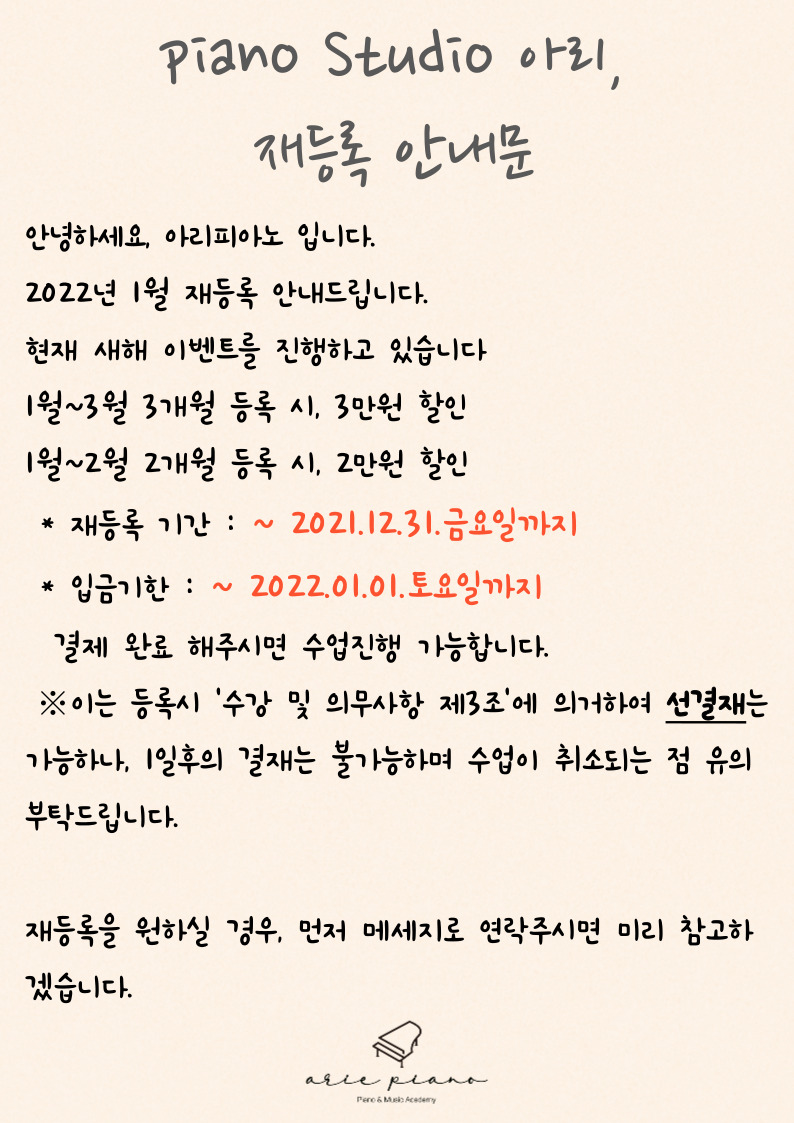 Piano Studio 아리,
재등록 안내문
안녕하세요, 아리피아노 입니다.
2022년 1월 재등록 안내드립니다.
현재 새해 이벤트를 진행하고 있습니다
1월~3월 3개월 등록 시, 3만원 할인
1월~2월 2개월 등록 시, 2만원 할인
* 재등록 기간 : ~ 2021.12.31.금요일까지
* 입금기한 : ~ 2022.01.01.토요일까지
결제 완료 해주시면 수업진행 가능합니다.
※이는 등록시 '수강 및 의무사항 제3조'에 의거하여 선결재는
가능하나, 1일후의 결재는 불가능하며 수업이 취소되는 점 유의
부탁드립니다.
재등록을 원하실 경우, 먼저 메세지로 연락주시면 미리 참고하
겠습니다.
arie piano
Piano & Music Academy